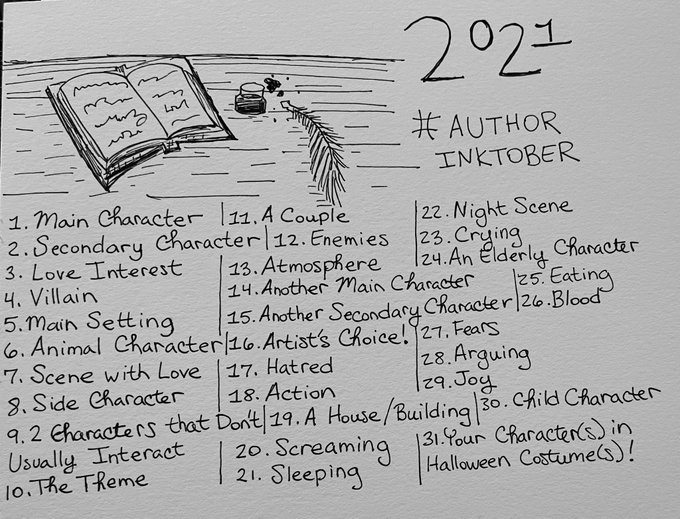 2021
# AUTHOR
INKTOBER
1. Main Character
2. Secondary Character
3. Love Interest
4. Villain
5. Main Setting
6. Animal Character
7. Scene with Love
8. Side Character
9. 2 Characters that Don't
Usually Interact
10. The Theme
11. A Couple
12. Enemies
13. Atmosphere
14. Another Main Character
15. Another Secondary Character
16. Artist's Choice!
17. Hatred
18. Action
19. A House/Building
20. Screaming
21. Sleeping
22. Night Scene
23. Crying
24. An Elderly Character
25. Eating
26. Blood
27. Fears
28. Arguing
29. Joy
30. Child Character
31. Your Character(s) in
Halloween Costume(s)!